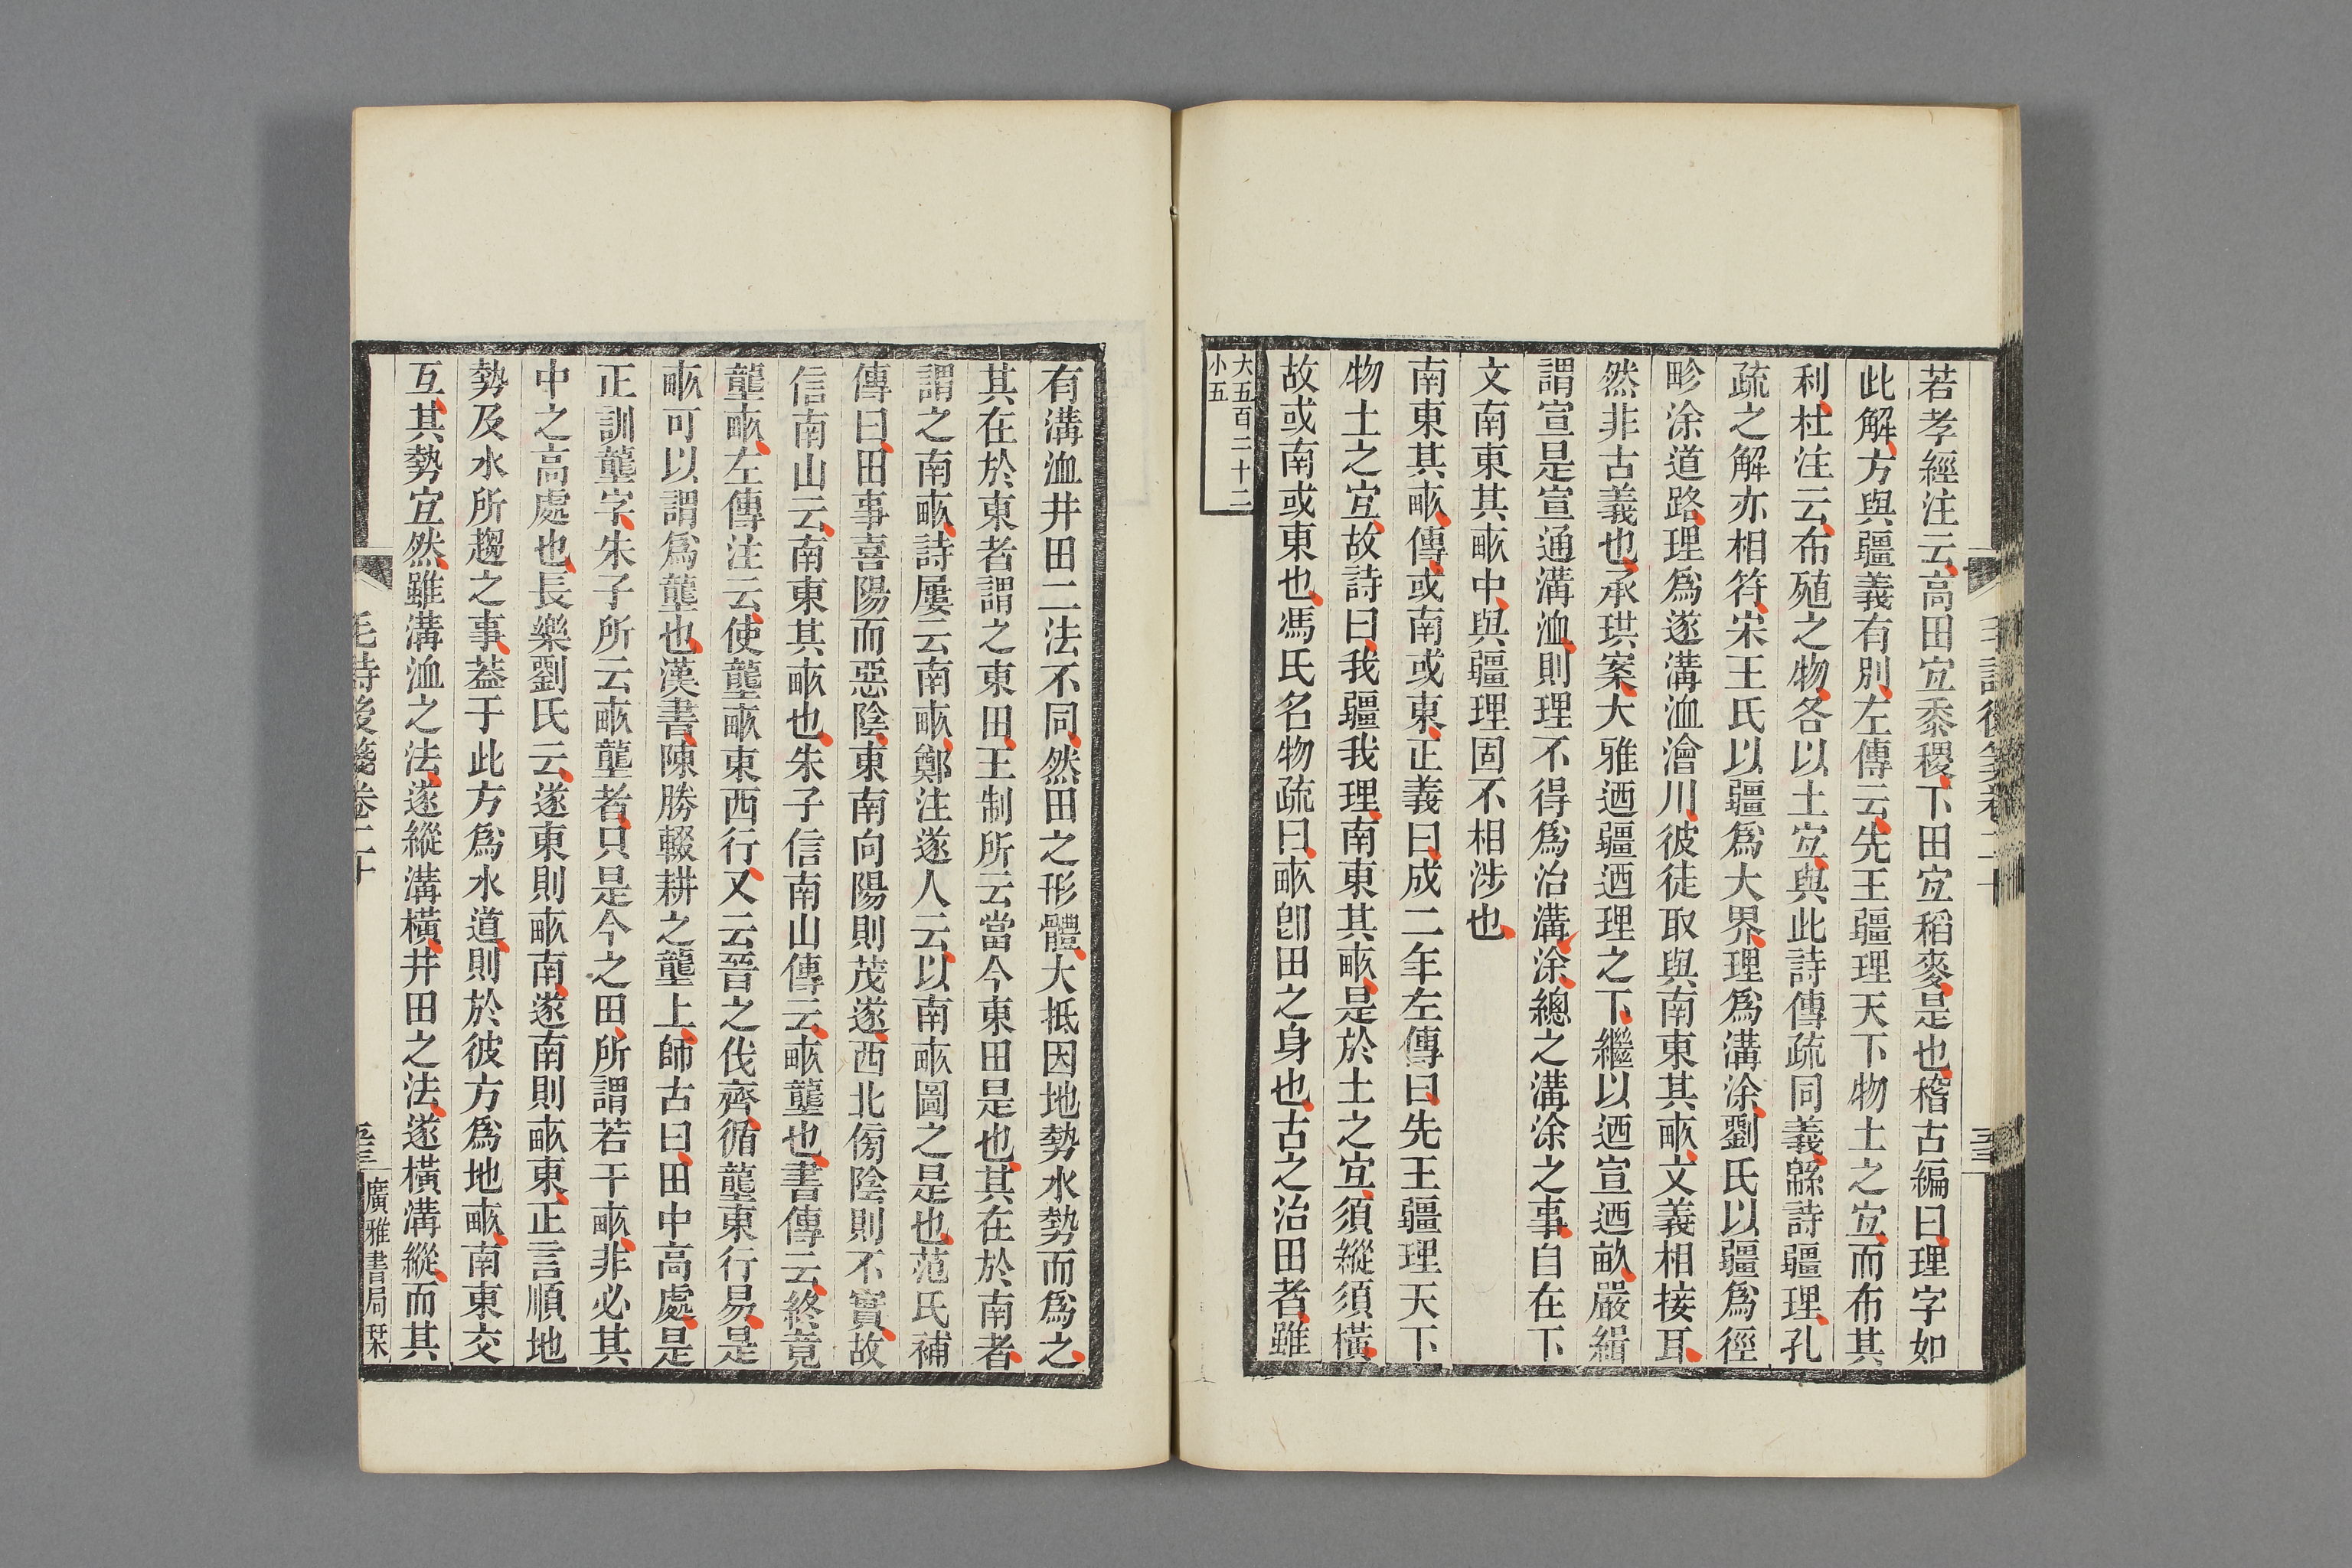 若孝經注云高田宜黍稷下田宜稻麥是也稽古編曰理字如
此解方與疆義有別左傳云先王疆理天下物土之宜而布其
利杜注云布殖之物各以土宜與此詩傳疏同義緜詩疆理孔
疏之解亦相符宋王氏以疆爲大界理爲溝涂劉氏以疆爲徑
畛涂道路理爲遂溝洫澮川彼徒取與南東其畞文義相接耳
然非古義也承珙案大雅迺疆迺理之下繼以迺宣迺畝嚴緝
謂宣是宣通溝洫則理不得爲治溝涂總之溝涂之事自在下
文南東其畞中與疆理固不相涉也
南東其畞傳或南或東正義曰成二年左傳曰先王疆理天下
物土之宜故詩曰我疆我理南東其畞是於土之宜須縱須橫
故或南或東也馮氏名物疏曰畞卽田之身也古之治田者雖
大五百二十二
小五
有溝洫井田二法不同然田之形體大抵因地勢水勢而爲之
其在於東者謂之東田王制所云當今東田是也其在於南者
謂之南畞詩屢云南畞鄭注遂人云以南畞圖之是也范氏補
傳曰田事喜陽而惡陰東南向陽則茂遂西北傍陰則不實故
信南山云南東其畞也朱子信南山傳云畞壟也書傳云終竟
壟畞左傳注云使壟畞東西行又云晉之伐齊循壟東行易是
畞可以謂爲壟也漢書陳勝輟耕之壟上師古曰田中高處是
正訓壟字朱子所云畞壟者只是今之田所謂若干畞非必其
中之高處也長樂劉氏云遂東則畞南遂南則畞東正言順地
勢及水所趨之事蓋于此方爲水道則於彼方爲地畞南東交
互其勢宜然雖溝洫之法遂縱溝橫井田之法遂橫溝縱而其
毛詩後箋卷二十
廣雅書局栞